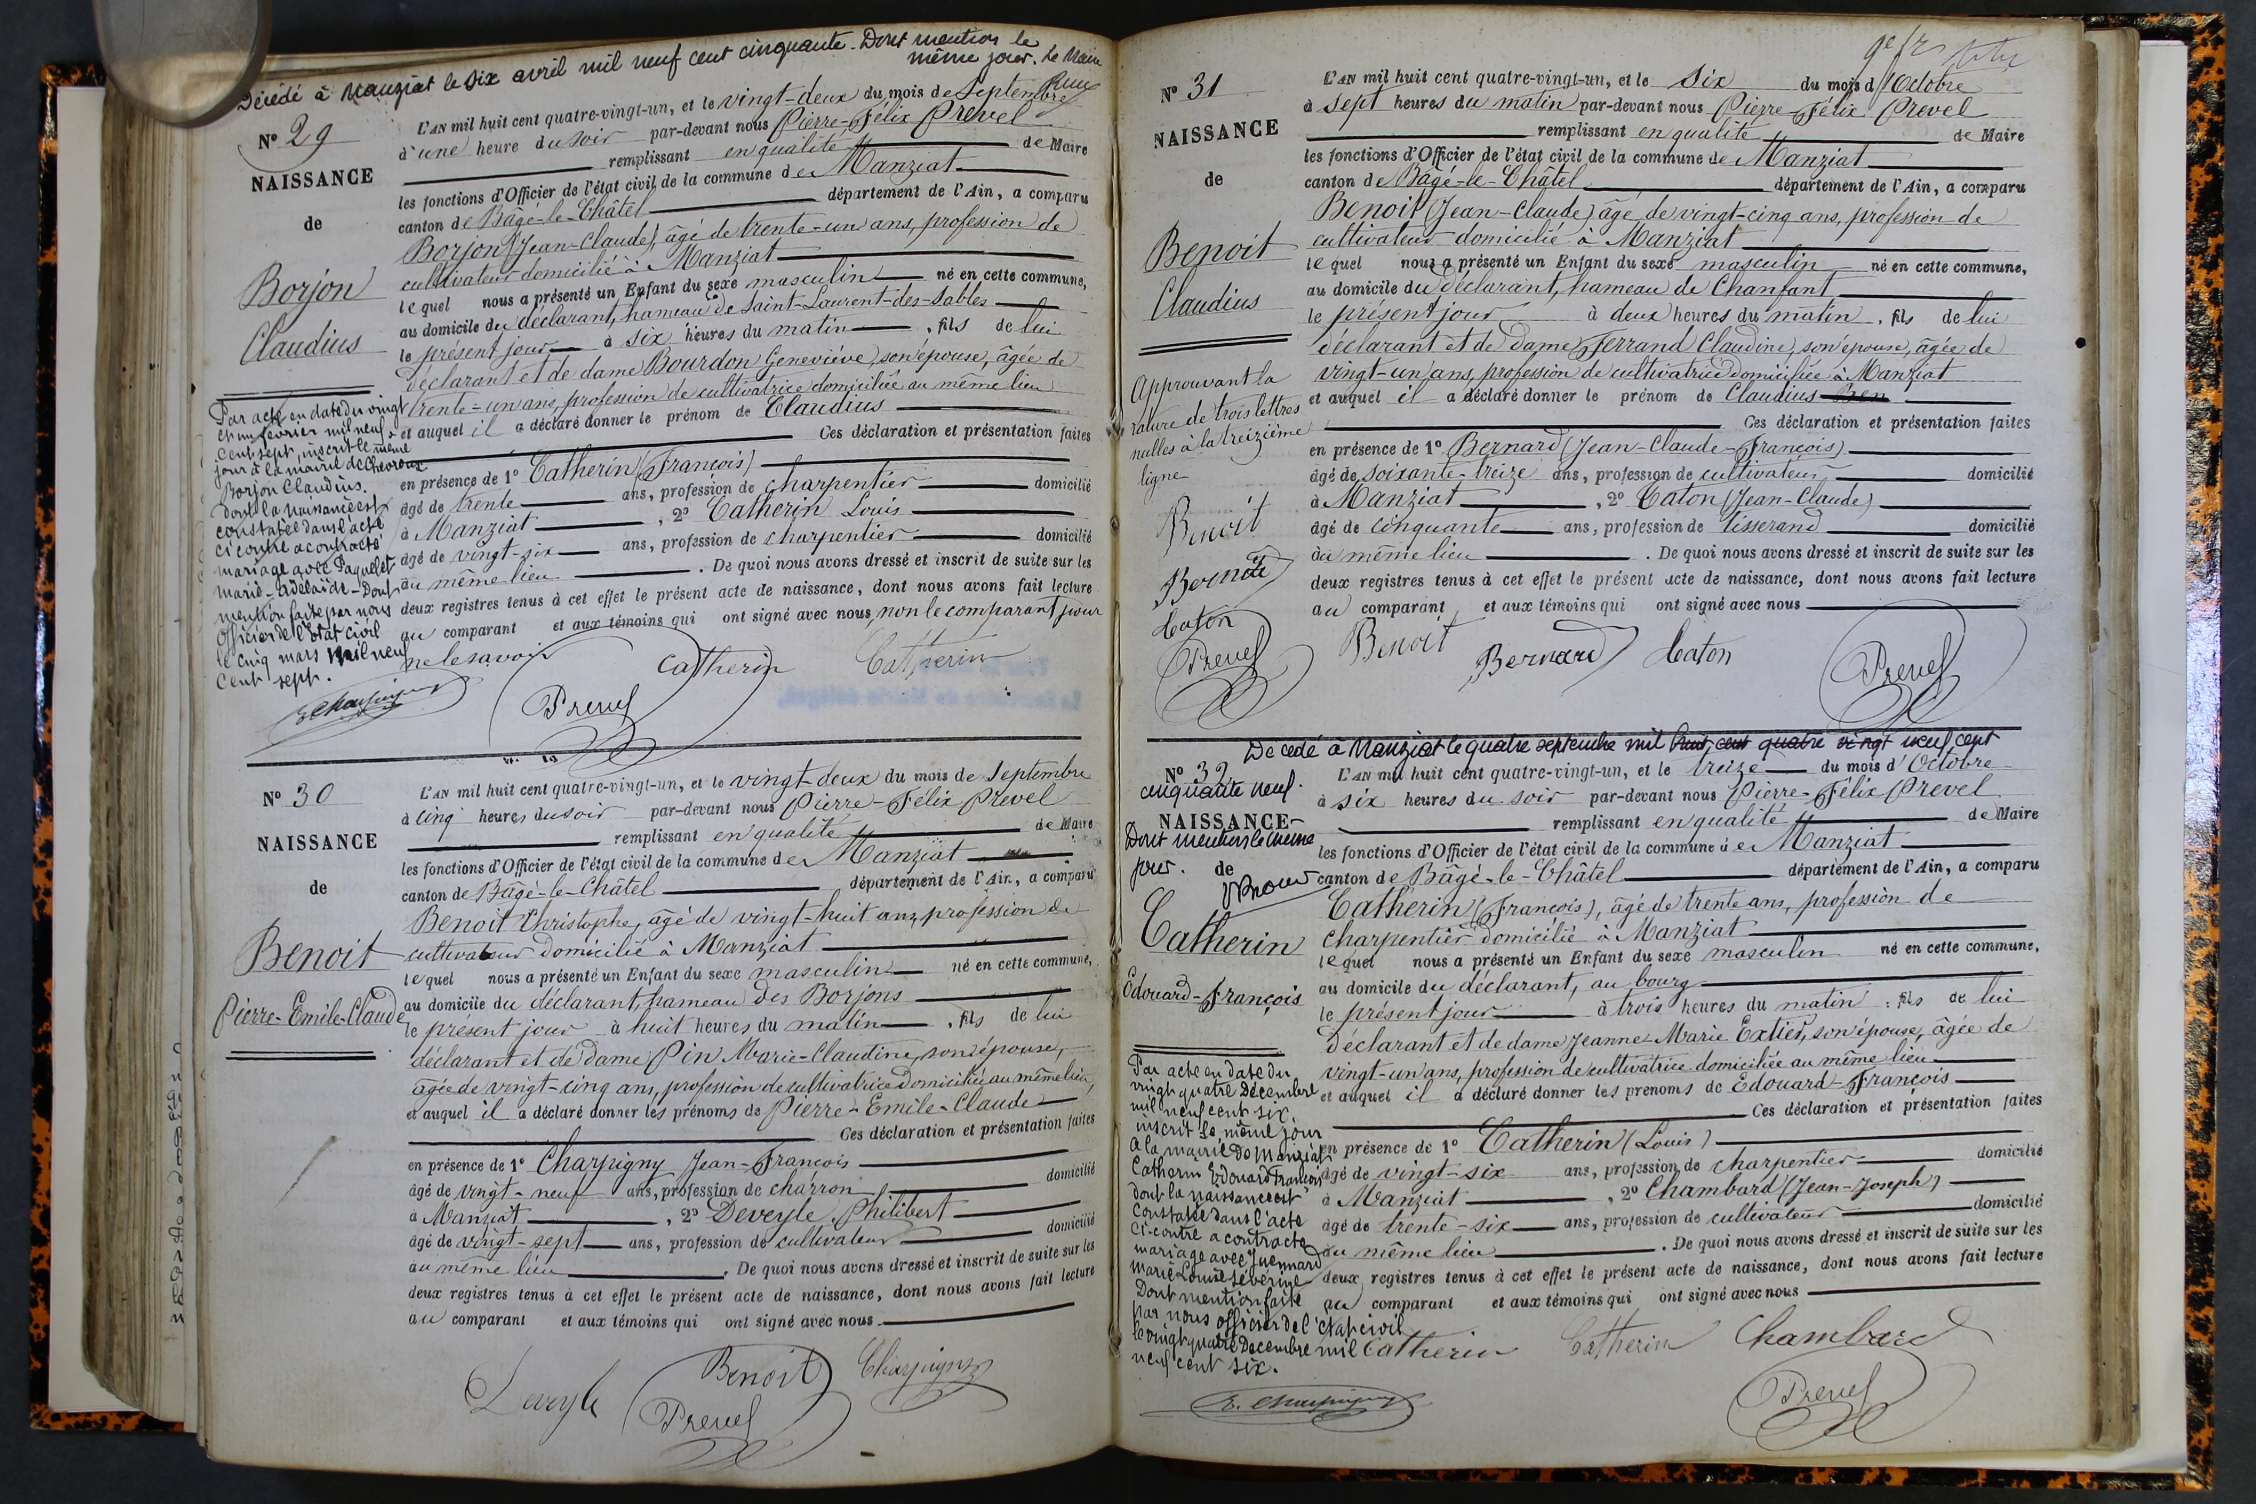 Décédé à Manziat le six avril mil neuf cent cinquante. Dont mention le
même jour. Le Maire
N° 29
NAISSANCE
de
Borjon
Claudius
L'AN mil huit cent quatre-vingt-un, et le vingt-deux du mois de Septembre
à une heure du soir par-devant nous Pierre-Félix Prevel
remplissant en qualité de Maire
les fonctions d'Officier de l'état civil de la commune de Manziat
canton de Bâgé-le-Châtel département de l'Ain, a comparu
Borjon (Jean-Claude), âgé de trente-un ans, profession de
cultivateur domicilié à Manziat
lequel nous a présenté un Enfant du sexe masculin né en cette commune,
au domicile du déclarant, hameau de Saint-Laurent-des-Sables
le présent jour à six heures du matin, fils de lui
déclarant et de dame Bourdon Geneviève, son épouse, âgée de
trente-un ans, profession de cultivatrice domiciliée au même lieu
et auquel il a déclaré donner le prénom de Claudius
Ces déclaration et présentation faites
en présence de 1° Catherin (François)
âgé de trente ans, profession de charpentier domicilié
à Manziat, 2° Catherin Louis
âgé de vingt-six ans, profession de charpentier domicilié
au même lieu. De quoi nous avons dressé et inscrit de suite sur les
deux registres tenus à cet effet le présent acte de naissance, dont nous avons fait lecture
au comparant et aux témoins qui ont signé avec nous, non le comparant pour
ne le savoir
Catherin Catherin
Prevel
Par acte en date du vingt
et un février mil neuf
cent sept, inscrit le même
jour à la mairie de Chevroux
Borjon Claudius.
dont la naissance est
constatée dans l'acte
ci contre a contracté
mariage avec Paquelet
Marie-Adélaïde - Dont
mention faite par nous
officier de l'état civil
le cinq mars mil neuf
cent sept.
N° 30
NAISSANCE
de
Benoit
Pierre-Emile-Claude
L'AN mil huit cent quatre-vingt-un, et le vingt-deux du mois de Septembre
à cinq heures du soir par-devant nous Pierre-Félix Prevel
remplissant en qualité de Maire
les fonctions d'Officier de l'état civil de la commune de Manziat
canton de Bâgé-le-Châtel département de l'Ain, a comparu
Benoit Christophe, âgé de vingt-huit ans, profession de
cultivateur domicilié à Manziat
lequel nous a présenté un Enfant du sexe masculin né en cette commune,
au domicile du déclarant, hameau des Borjons
le présent jour à huit heures du matin, fils de lui
déclarant et de dame Pin Marie-Claudine, son épouse,
âgée de vingt-cinq ans, profession de cultivatrice domiciliée au même lieu,
et auquel il a déclaré donner les prénoms de Pierre-Emile-Claude
Ces déclaration et présentation faites
en présence de 1° Charpigny Jean-François
âgé de vingt-neuf ans, profession de charron domicilié
à Manziat, 2° Deveyle Philibert
âgé de vingt-sept ans, profession de cultivateur domicilié
au même lieu. De quoi nous avons dressé et inscrit de suite sur les
deux registres tenus à cet effet le présent acte de naissance, dont nous avons fait lecture
au comparant et aux témoins qui ont signé avec nous.
Deveyle Benoit Charpigny
Prevel
N° 31
NAISSANCE
de
Benoit
Claudius
L'AN mil huit cent quatre-vingt-un, et le six du mois d'Octobre
à sept heures du matin par-devant nous Pierre-Félix Prevel
remplissant en qualité de Maire
les fonctions d'Officier de l'état civil de la commune de Manziat
canton de Bâgé-le-Châtel département de l'Ain, a comparu
Benoit (Jean-Claude) âgé de vingt-cinq ans, profession de
cultivateur domicilié à Manziat
lequel nous a présenté un Enfant du sexe masculin né en cette commune,
au domicile du déclarant, hameau de Chanfant
le présent jour à deux heures du matin, fils de lui
déclarant et de dame Ferrand Claudine, son épouse, âgée de
vingt-un ans, profession de cultivatrice domiciliée à Manziat
et auquel il a déclaré donner le prénom de Claudius
Ces déclaration et présentation faites
en présence de 1° Bernard (Jean-Claude-François)
âgé de soixante-treize ans, profession de cultivateur domicilié
à Manziat, 2° Caton (Jean-Claude)
âgé de cinquante ans, profession de tisserand domicilié
au même lieu. De quoi nous avons dressé et inscrit de suite sur les
deux registres tenus à cet effet le présent acte de naissance, dont nous avons fait lecture
au comparant et aux témoins qui ont signé avec nous
Benoit Bernard Caton Prevel
Approuvant la
rature de trois lettres
nulles à la treizième
ligne
Benoit
Bernard
Caton
Prevel
Decedé à Manziat le quatre septembre mil huit cent quatre vingt neuf cent
cinquante neuf.
Dont mention le même
jour.
N° 32
NAISSANCE
de
Catherin
Edouard-François
L'AN mil huit cent quatre-vingt-un, et le treize du mois d'Octobre
à six heures du soir par-devant nous Pierre-Félix Prevel
remplissant en qualité de Maire
les fonctions d'Officier de l'état civil de la commune de Manziat
canton de Bâgé-le-Châtel département de l'Ain, a comparu
Catherin (François), âgé de trente ans, profession de
charpentier domicilié à Manziat
lequel nous a présenté un Enfant du sexe masculin né en cette commune,
au domicile du déclarant, au bourg
le présent jour à trois heures du matin, fils de lui
déclarant et de dame Jeanne-Marie Extier, son épouse, âgée de
vingt-un ans, profession de cultivatrice domiciliée au même lieu
et auquel il a déclaré donner les prenoms de Edouard-François
Ces déclaration et présentation faites
en présence de 1° Catherin (Louis)
âgé de vingt-six ans, profession de charpentier domicilié
à Manziat, 2° Chambard (Jean-Joseph)
âgé de trente-six ans, profession de cultivateur domicilié
au même lieu. De quoi nous avons dressé et inscrit de suite sur les
deux registres tenus à cet effet le présent acte de naissance, dont nous avons fait lecture
au comparant et aux témoins qui ont signé avec nous
Catherin Catherin Chambard
Prevel
Par acte en date du
vingt quatre Décembre
mil neuf cent six.
inscrit le même jour
à la mairie de Manziat
Catherin Edouard François
dont la naissance est
constatée dans l'acte
ci-contre a contracté
mariage avec Guennard
Marie Louise Séverine
Dont mention faite
par nous officier de l'état civil
le vingt quatre Décembre mil
neuf cent six.
E. Charpigny